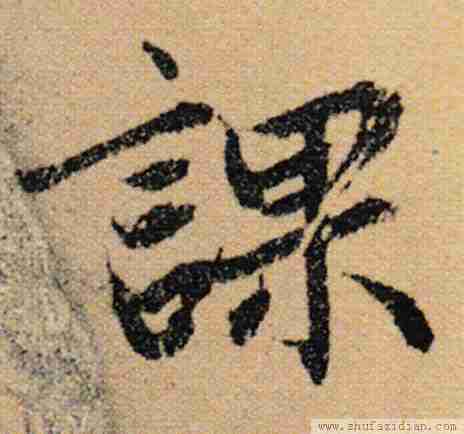 課
www.shufazidian.com